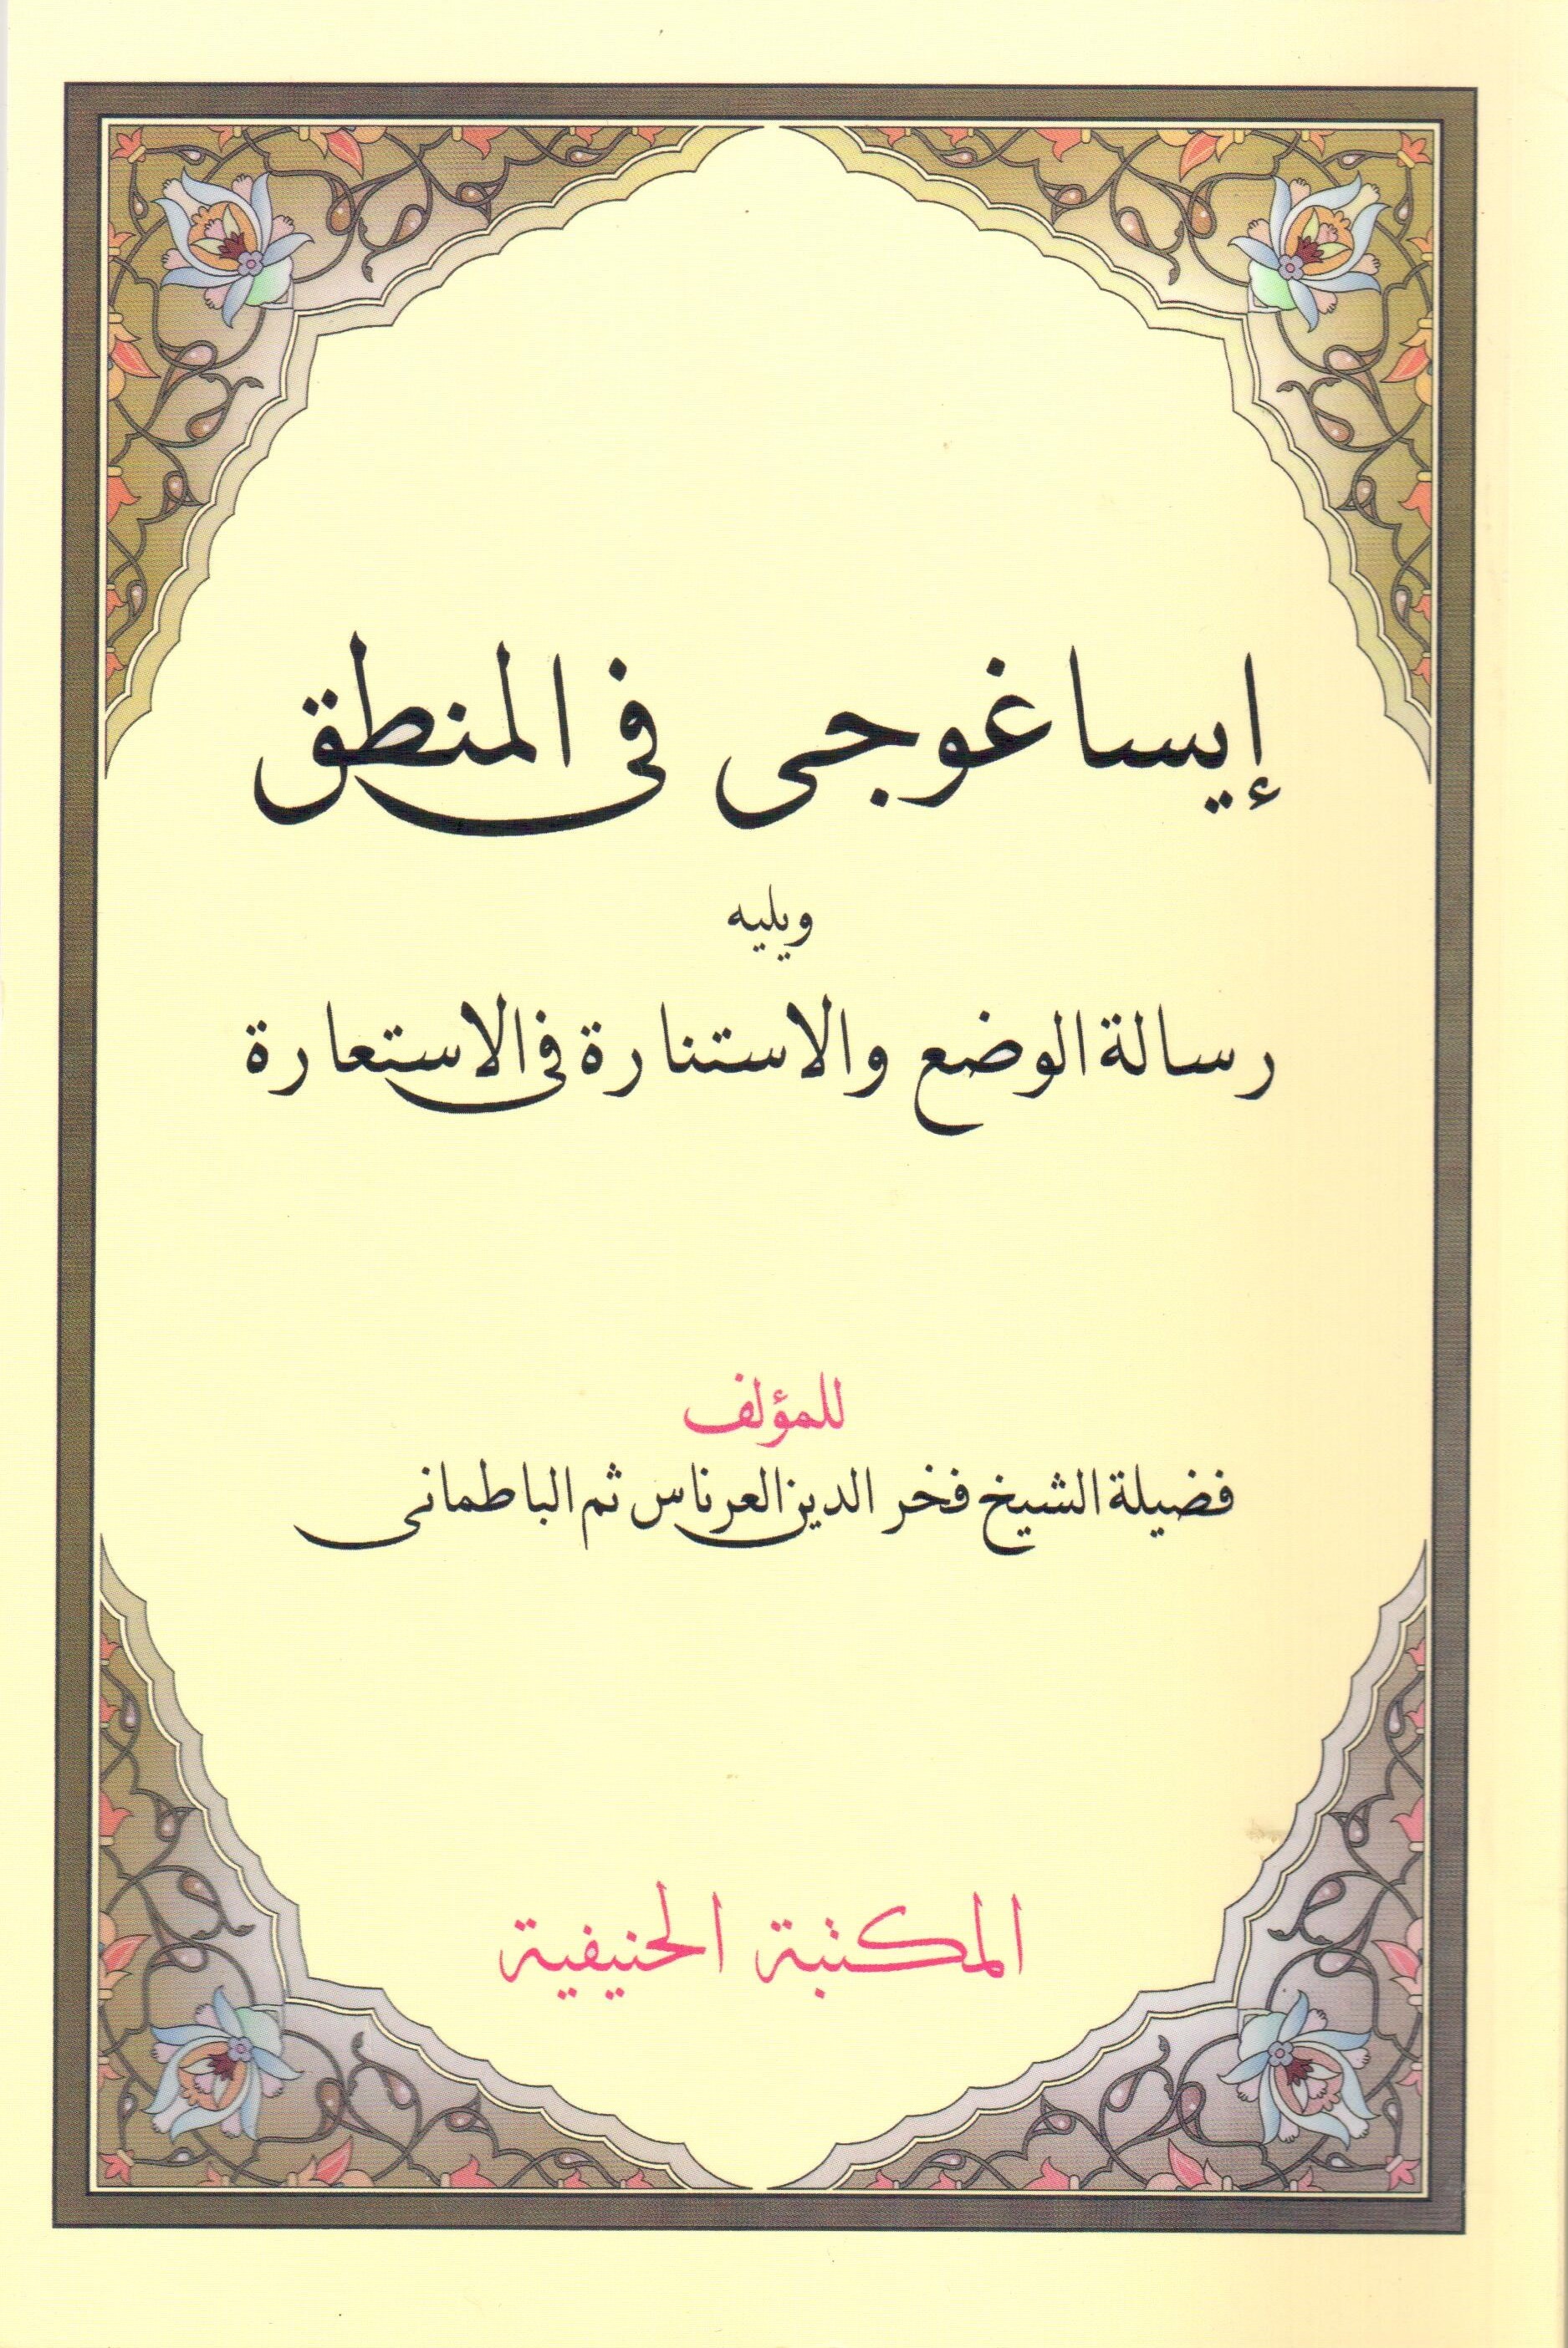 إيساغوجى فى المنطق
ويليه
رسالة الوضع والاستنارة فى الاستعارة
للمؤلف
فضيلة الشيخ فخر الدين العرناس ثم الباطمانى
المكتبة الحنيفية